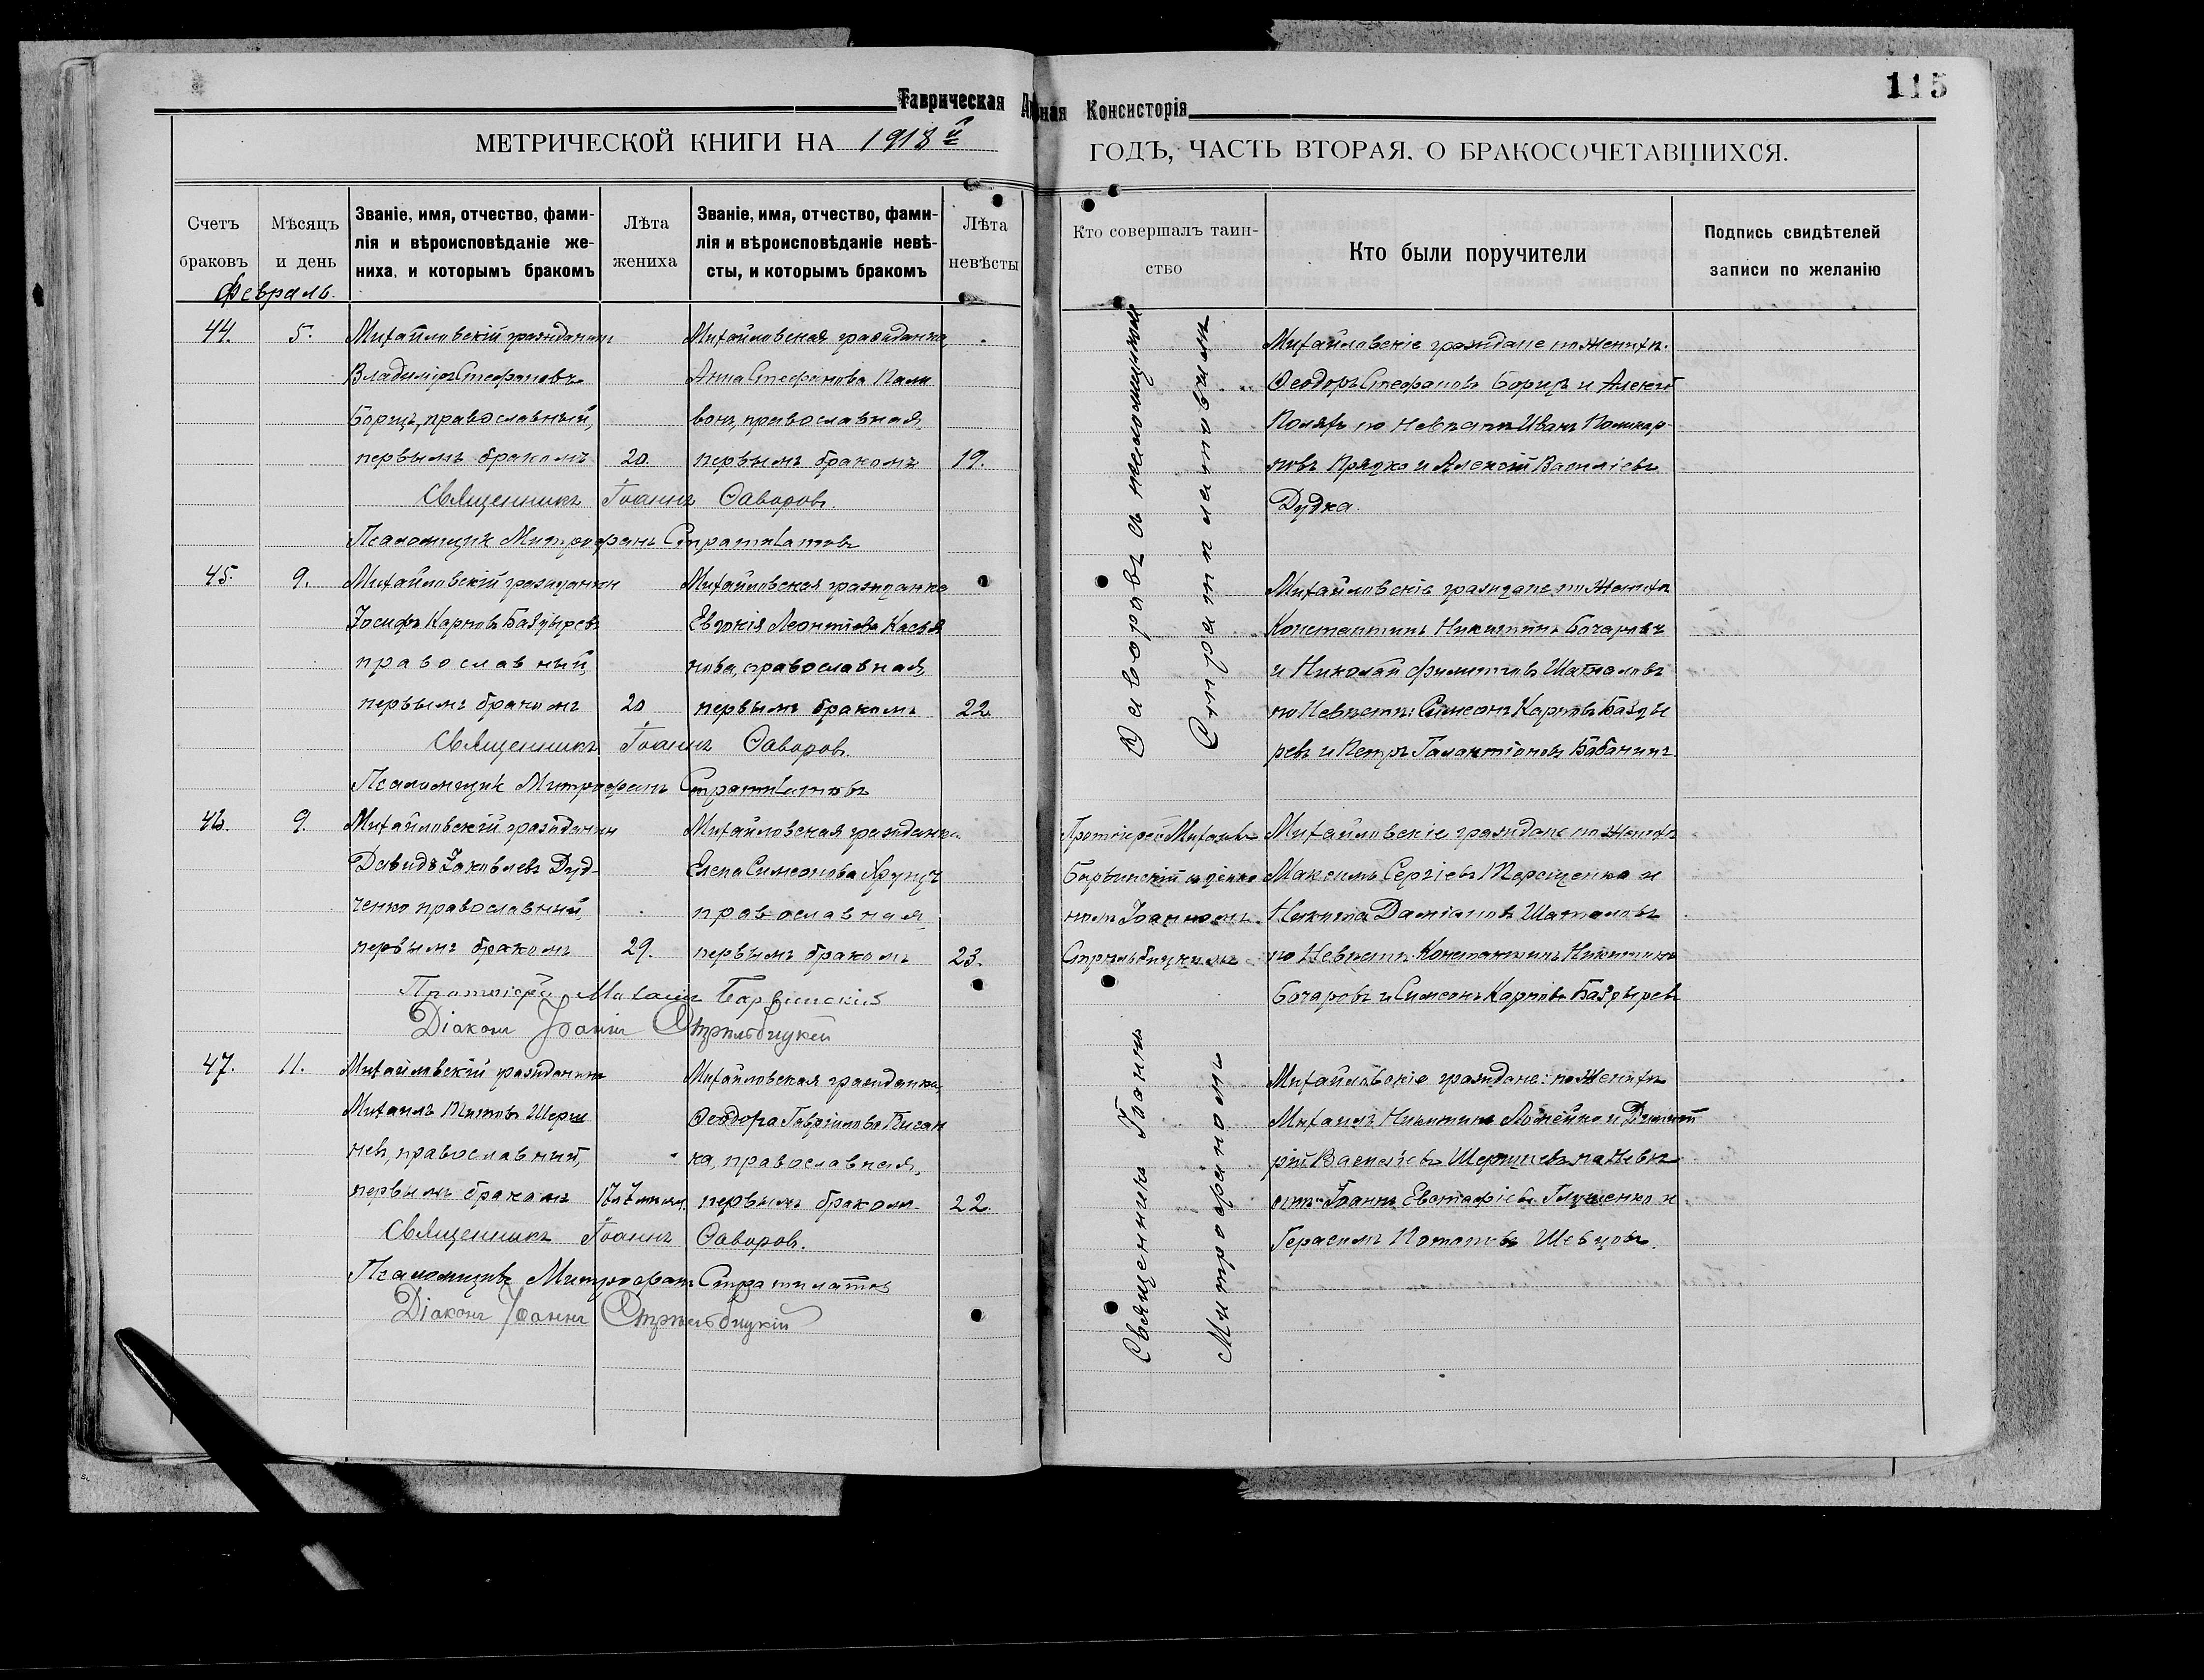 115
Таврическая Д ная Консисторія
МЕТРИЧЕСКОЙ КНИГИ НА 1918й ГОДЪ, ЧАСТЬ ВТОРАЯ. О БРАКОСОЧЕТАВШИХСЯ.
Счетъ браковъ
Мѣсяцъ и день
Званіе, имя, отчество, фами-
лія и вѣроисповѣданіе же-
ниха, и которымъ бракомъ
Лѣта жениха
Званіе, имя, отчество, фами-
лія и вѣроисповѣданіе невѣ-
сты, и которымъ бракомъ
Лѣта невѣсты
Кто совершалъ таин-
ство
Кто были поручители
Подпись свидѣтелей
записи по желанію
Февраль.
44. 5. Михайловскій гражданинъ
Владиміръ Стефановъ
Борщъ, православный,
первымъ бракомъ 20.
Михайловская гражданка,
Анна Стефанова
православная,
первымъ бракомъ 19.
Михайловскіе граждане по женихѣ:
Ѳеодоръ Стефановъ Борщъ и Алексѣй
по невѣстѣ Иванъ
Прядко и Алексѣй Василіевъ
Дудка.
Священникъ Іоаннъ Ѳаворовъ.
Псаломщикъ Митрофанъ Стратилатовъ
45. 9. Михайловскій гражданинъ
Іосифъ Карповъ Баздыревъ
православный,
первымъ бракомъ 20
Михайловская гражданка
Евдокія Леонтіева Касья
нова, православная,
первымъ бракомъ 22
Михайловскіе граждане: по женихѣ
Константинъ Никитинъ Бочаровъ
и Николай Филиповъ Шаталовъ
по невѣстѣ: Симеонъ Карповъ Базды
ревъ и Петръ Галактіоновъ Бабанинъ.
Священникъ Іоаннъ Ѳаворовъ.
Псаломщикъ Митрофанъ Стратилатовъ
46. 9. Михайловскій гражданин
Давидъ Іаковлевъ Дуд-
ченко православный,
первымъ бракомъ 29.
Михайловская гражданка
Елена Симеонова
православная
первымъ бракомъ 23.
Протоіерей Михаилъ
Барвинскій с діако
номъ Іоанномъ
Стрѣльбицкимъ
Михайловскіе граждане по женихѣ
Максимъ Сергіевъ Терещенко и
Никита Даміановъ Шаталовъ
по невѣстѣ Константинъ Никитинъ
Бочаровъ и Симеонъ Карповъ Баздыревъ
Протоіерей Михаилъ Барвинскій
Діаконъ Іоаннъ Стрѣльбицкій
47. 11. Михайловскій гражданинъ
Михаилъ Титовъ Шерш
невъ, православный,
первымъ бракомъ
Михайловская гражданка,
Ѳеодора Гавріилова Писан
ка, православная,
первымъ бракомъ 22.
Михайловскіе граждане: по женихѣ
Михаилъ Никитинъ Ломейко и Димит
рій Васильевъ Шершневъ по невѣ
стѣ Іоаннъ Евстафіевъ Глущенко и
Герасимъ Потаповъ Шевцовъ.
Священникъ Іоаннъ Ѳаворовъ.
Псаломщикъ Митрофанъ Стратилатовъ
Діаконъ Іоаннъ Стрѣльбицкій
Священникъ Іоаннъ Ѳаворовъ съ псаломщикомъ
Митрофаномъ Стратилатовымъ